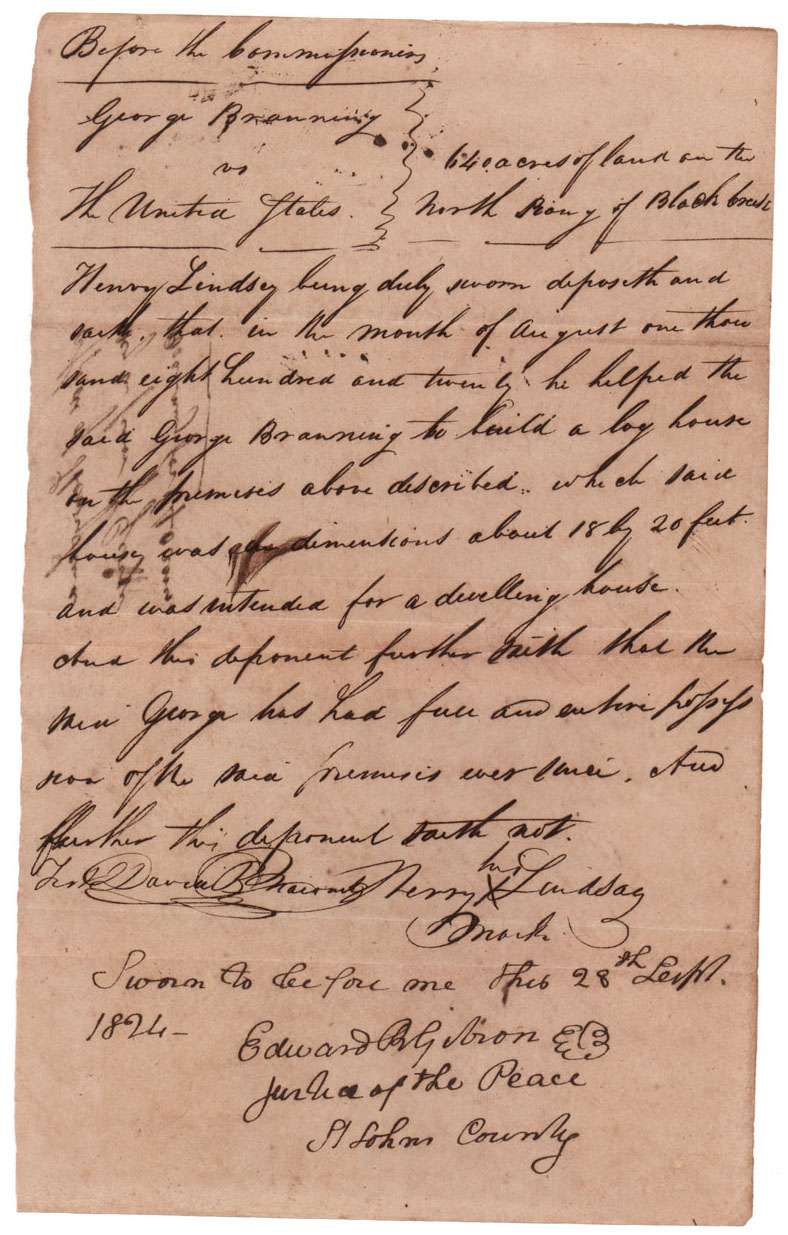 Before the Commissioners
George Branning
vs
The United States.
640 acres of land on the
North Prong of Black Creek
Henry Lindsey being duly sworn deposeth and
saith, that in the month of August one thou
sand eight hundred and twenty he helped the
said George Branning to build a log house
on the premises above described, which said
house was dimensions about 18 by 20 feet.
and was intended for a dwelling house.
And this deponent further saith that the
said George has had full and entire possess
sion of the said premises ever since. And
further this deponent saith not.
Test David B Macomb Henry his X mark Lindsay
Sworn to before me this 28th Sept.
1824 -
Edward R Gibson
Justice of the Peace
St Johns County